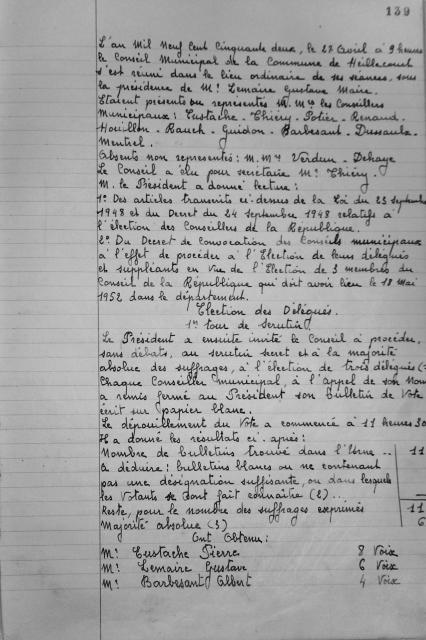 139
L'an Mil Neuf Cent Cinquante deux, le 27 Avril à 9 heures
le Conseil Municipal de la Commune de Heillecourt
s'est réuni dans le lieu ordinaire de ses séances, sous
la présidence de Mr Lemaire Gustave Maire.
Etaient présents ou représentés M. Mrs les Conseillers
Municipaux: Eustache - Thiéry - Potier - Renaud.
Houillon - Rauch - Guidon - Barbesant - Dussaulx
Mentrel.
Absents non représentés: M. Mrs Verdun - Dehaye
Le Conseil a élu pour secrétaire Mr Thiéry.
M. le Président a donné lecture:
1º Des articles transmis ci-dessus de la Loi du 23 Septembre
1948 et du Décret du 24 septembre 1948 relatifs à
l'élection des Conseillers de la République.
2º Du Decret de Convocation des Conseils municipaux
à l'effet de procéder à l'Election de leurs délégués
et suppléants en vue de l'Election de 3 membres du
Conseil de la République qui doit avoir lieu le 18 Mai
1952 dans le département.
Election des Délégués.
1er tour de Scrutin.
Le Président a ensuite invité le Conseil à procéder,
sans débats, au scrutin secret et à la majorité
absolue des suffrages, à l'élection de trois délégués
Chaque Conseiller municipal, à l'appel de son Nom
a remis fermé au Président son bulletin de Vote
écrit sur papier blanc.
Le dépouillement du Vote a commencé à 11 heures 30
Il a donné les résultats ci-après:
Nombre de bulletins trouvé dans l'Urne .. 11
A déduire: bulletins blancs ou ne contenant
pas une désignation suffisante, ou dans lesquels
les Votants se sont fait connaître (2) ..
Reste, pour le nombre des suffrages exprimés 11
Majorité absolue (3) 6
Ont Obtenu:
Mr Eustache Pierre 8 Voix
Mr Lemaire Gustave 6 Voix
Mr Barbesant Albert 4 Voix